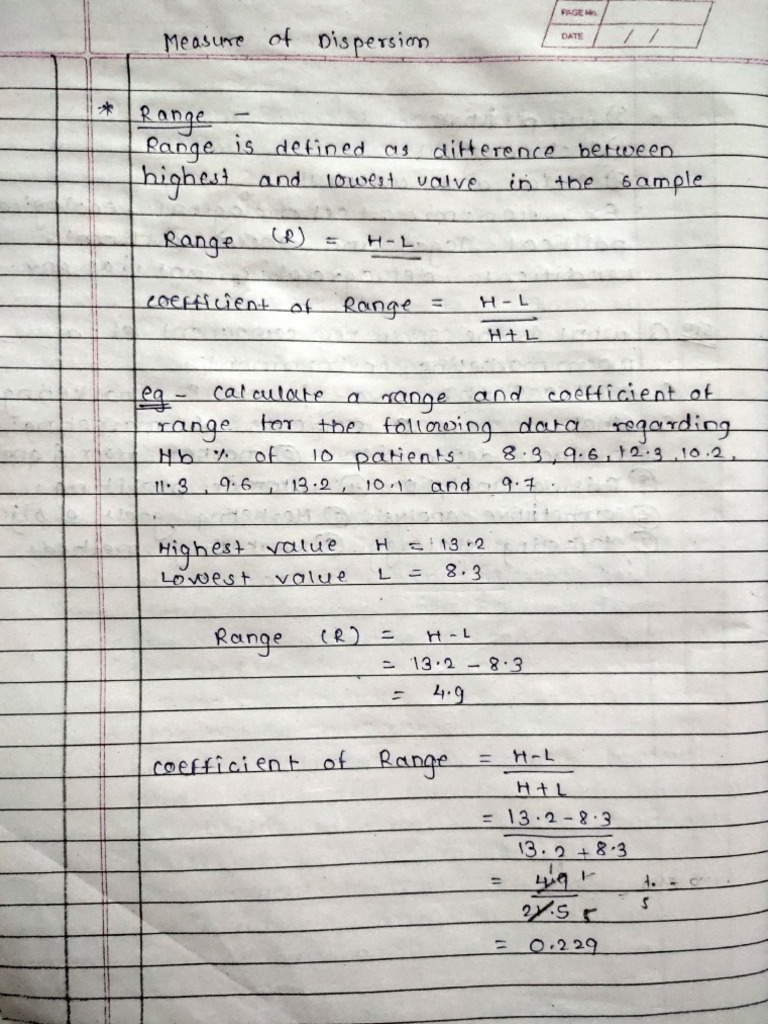 PAGE No.
DATE / /
Measure of Dispersion
* Range -
Range is defined as difference between
highest and lowest value in the sample
Range (R) = H-L
coefficient of Range = H-L
H+L
eg - calculate a range and coefficient of
range for the following data regarding
Hb % of 10 patients 8.3, 9.6, 12.3, 10.2,
11.3, 9.6, 13.2, 10.1 and 9.7.
Highest value H = 13.2
Lowest value L = 8.3
Range (R) = H-L
= 13.2 - 8.3
= 4.9
coefficient of Range = H-L
H+L
= 13.2 - 8.3
13.2 + 8.3
= 4.9
21.5
= 0.229